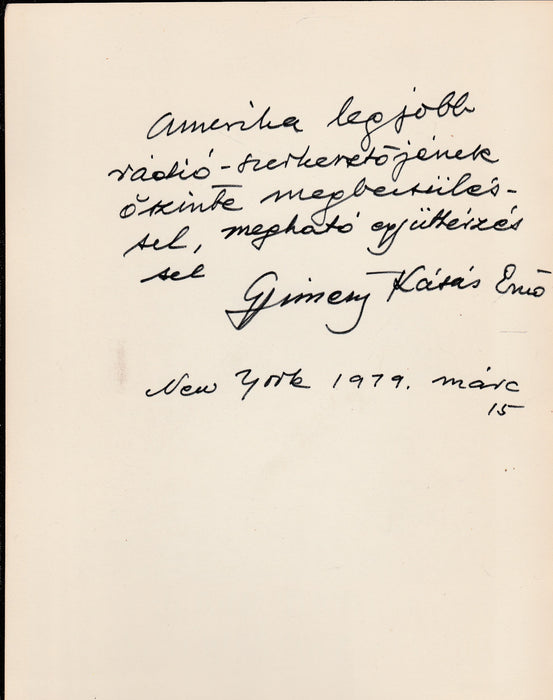 Amerika legjobb
rádió-szerkesztőjének
őszinte megbecsülés-
sel, megható együttérzés
sel
Gyimesy Kásás Ernő
New York 1979. márc
15